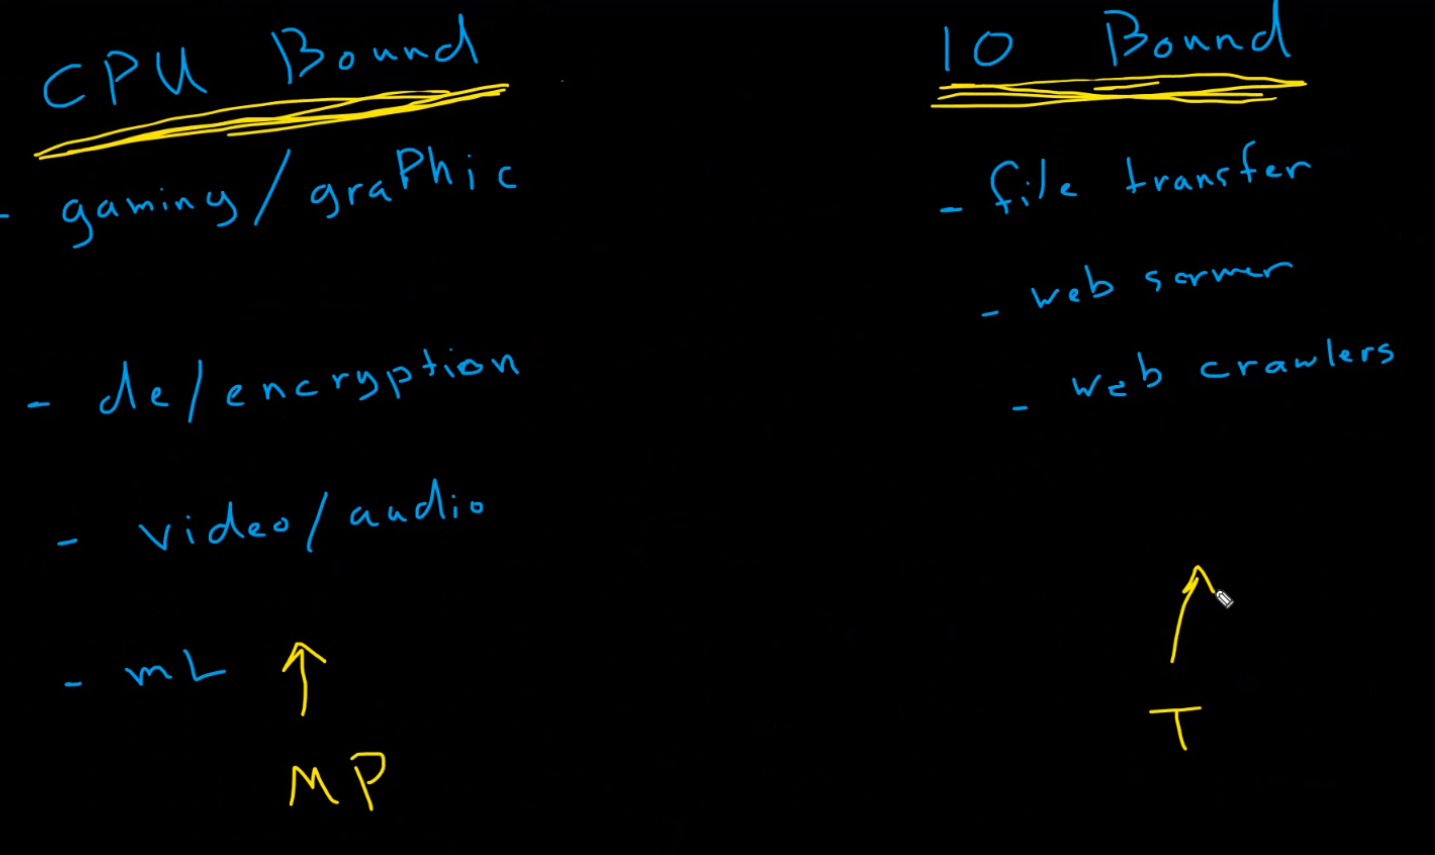 CPU Bound
- gaming/graPhic
- de/encryption
- video/audio
- mL
MP
IO Bound
- file transfer
- web server
- web crawlers
T